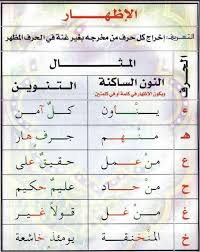 الإظهار
التعريف: إخراج كل حرف من مخرجه بغير غنة في الحرف المظهر
الحرف المثال
النون الساكنة التنوين
ويكون الإظهار في كلمة أو في كلمتين
ء ينئون كل آمن
هـ منهم جرف هار
ع من عمل حقيق على
ح من حاد عليم حكيم
غ من غل قولا غير
خ المنخنقة يومئذ خاشعة